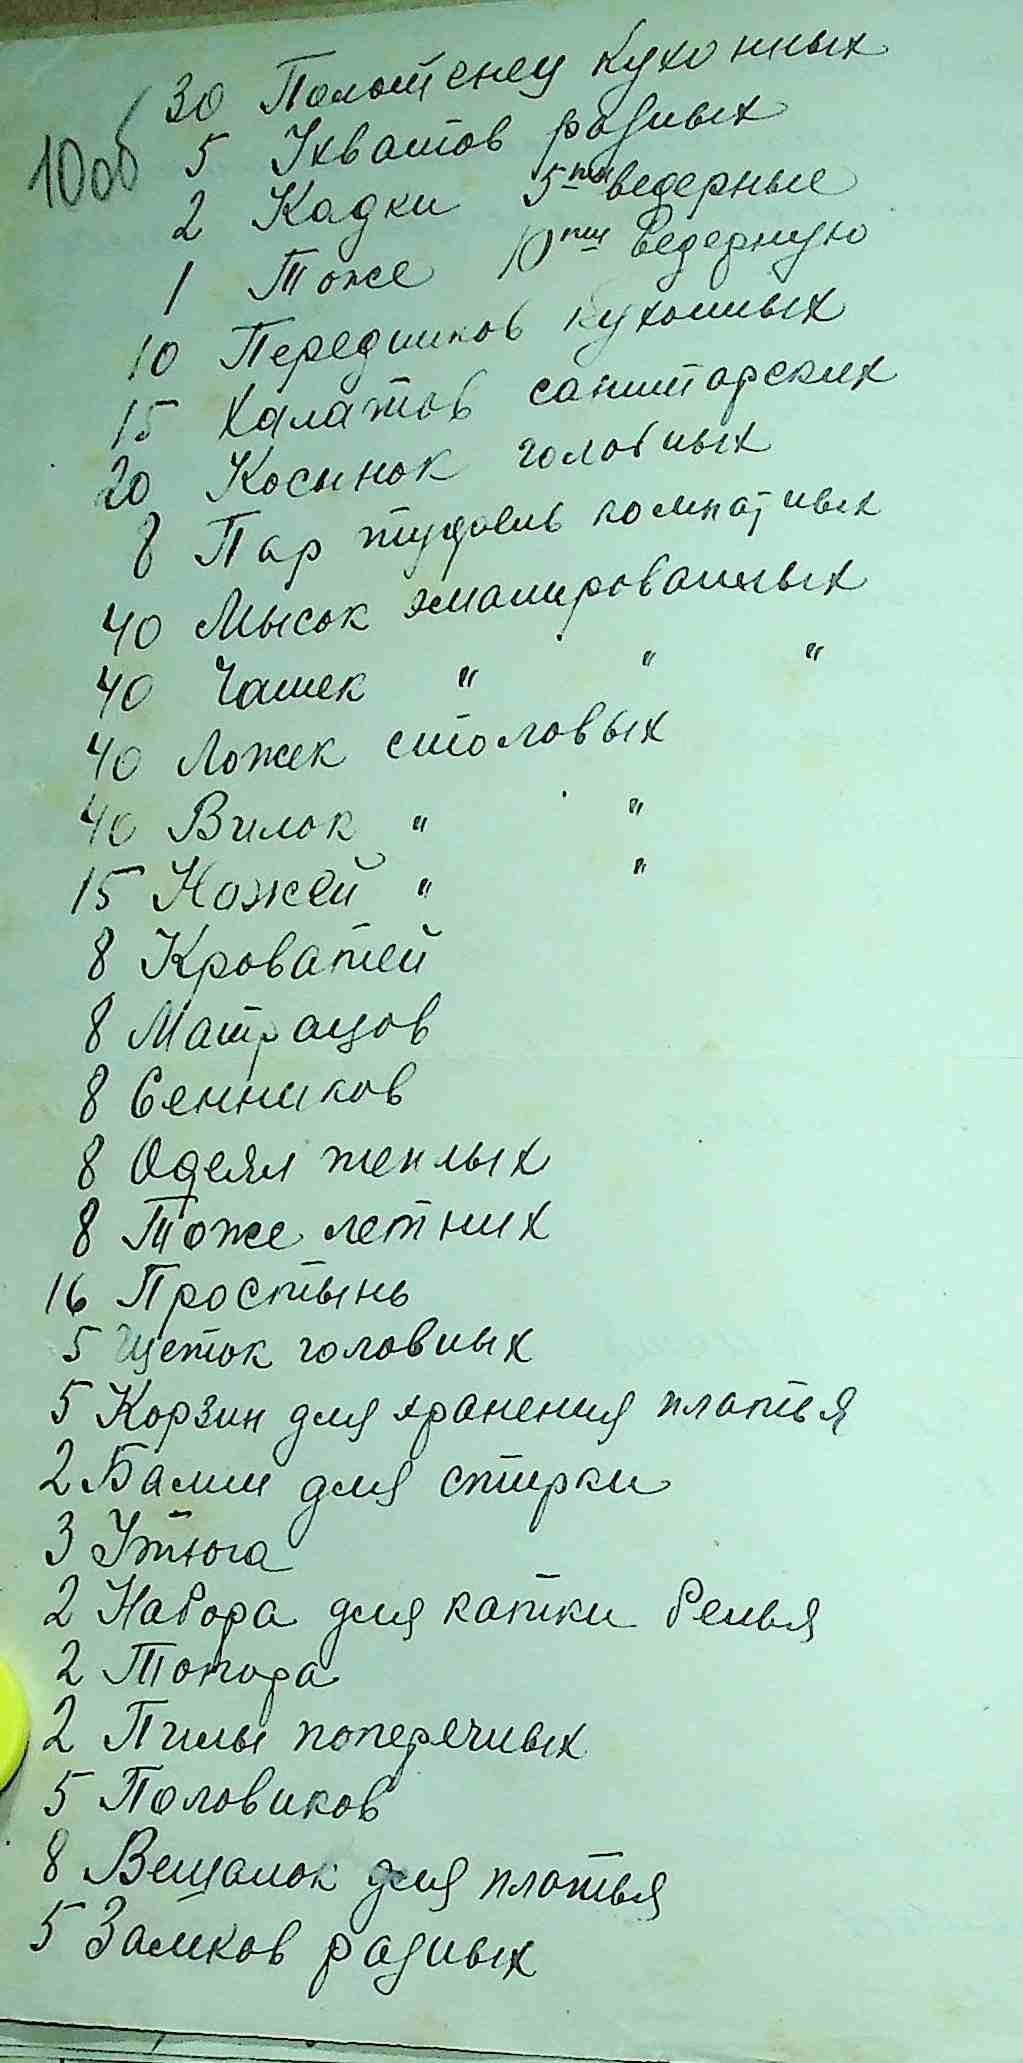 10об
30 Полотенец кухонных
5 Ухватов разных
2 Кадки 5ти ведерные
1 Тоже 10ти ведерную
10 Передников кухонных
15 Халатов санитарских
20 Косынок головных
8 Пар туфель комнатных
40 Мысок эмалированных
40 Чашек " " "
40 Ложек столовых
40 Вилок " "
15 Ножей " "
8 Кроватей
8 Матрацов
8 Сенников
8 Одеял теплых
8 Тоже летних
16 Простынь
5 Щеток головных
5 Корзин для хранения платья
2 Бални для стирки
3 Утюга
2 Набора для катки белья
2 Топора
2 Пилы поперечных
5 Половиков
8 Вешалок для платья
5 Замков разных